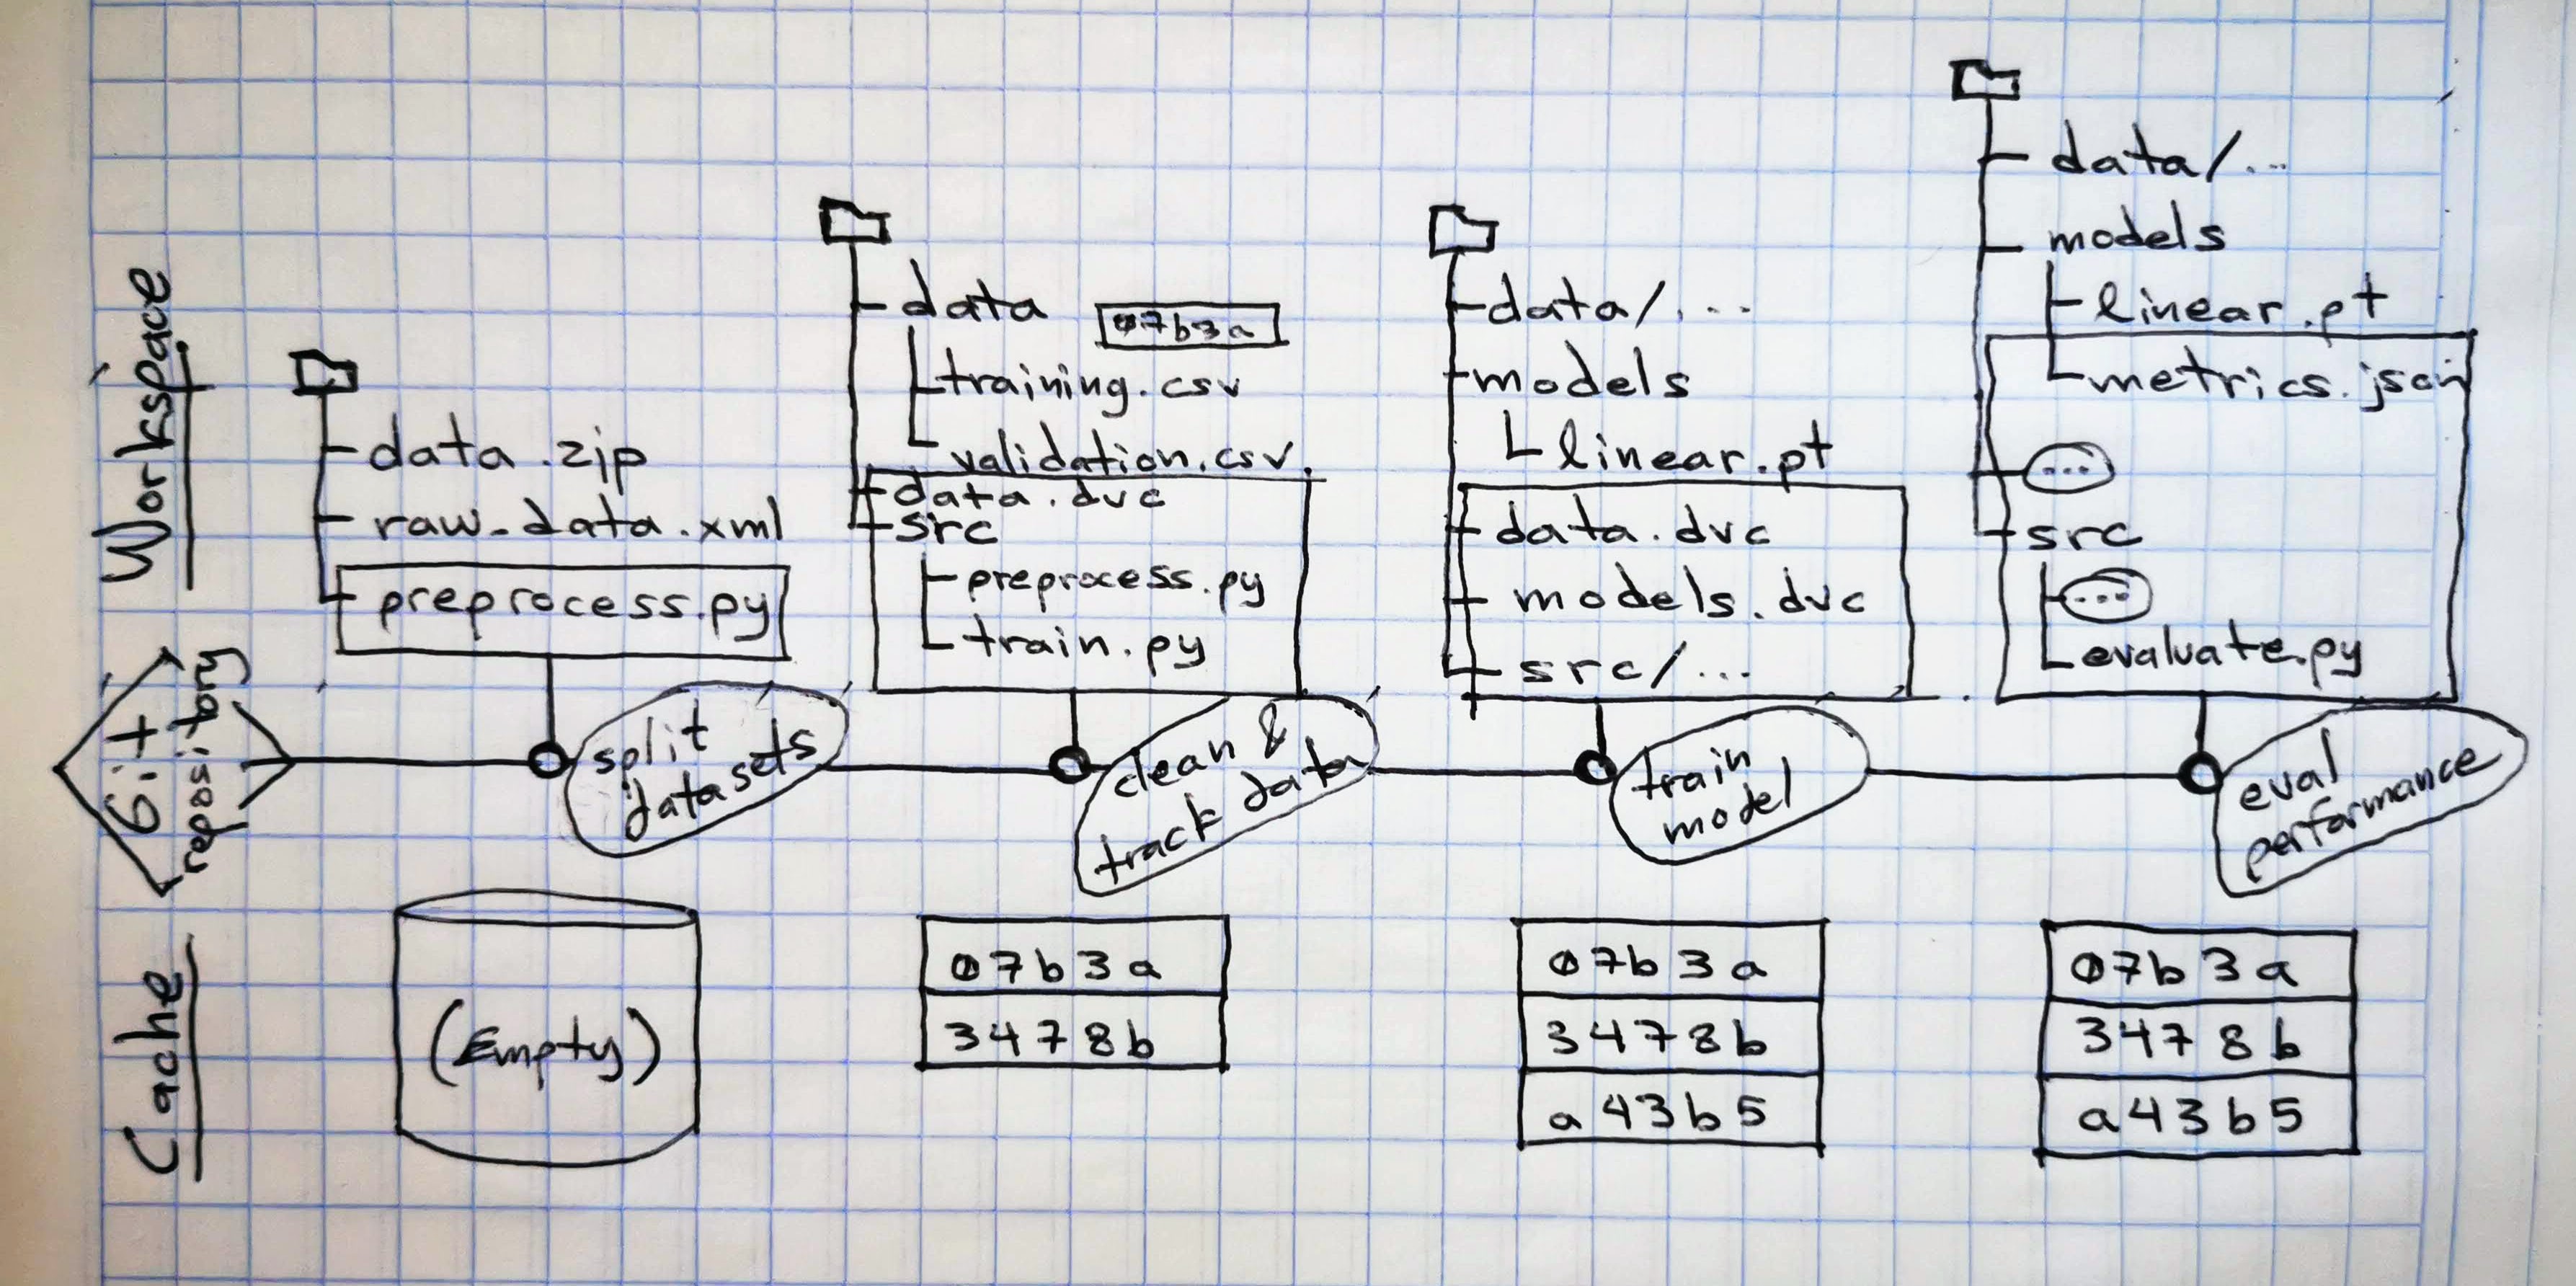 Workspace
data.zip
raw_data.xml
preprocess.py
data
07b3a
training.csv
validation.csv
data.dvc
src
preprocess.py
train.py
data/...
models
linear.pt
data.dvc
models.dvc
src/...
data/...
models
linear.pt
metrics.json
...
src
...
evaluate.py
Git
repository
split
datasets
clean &
track data
train
model
eval
performance
Cache
(Empty)
07b3a
3478b
07b3a
3478b
a43b5
07b3a
3478b
a43b5